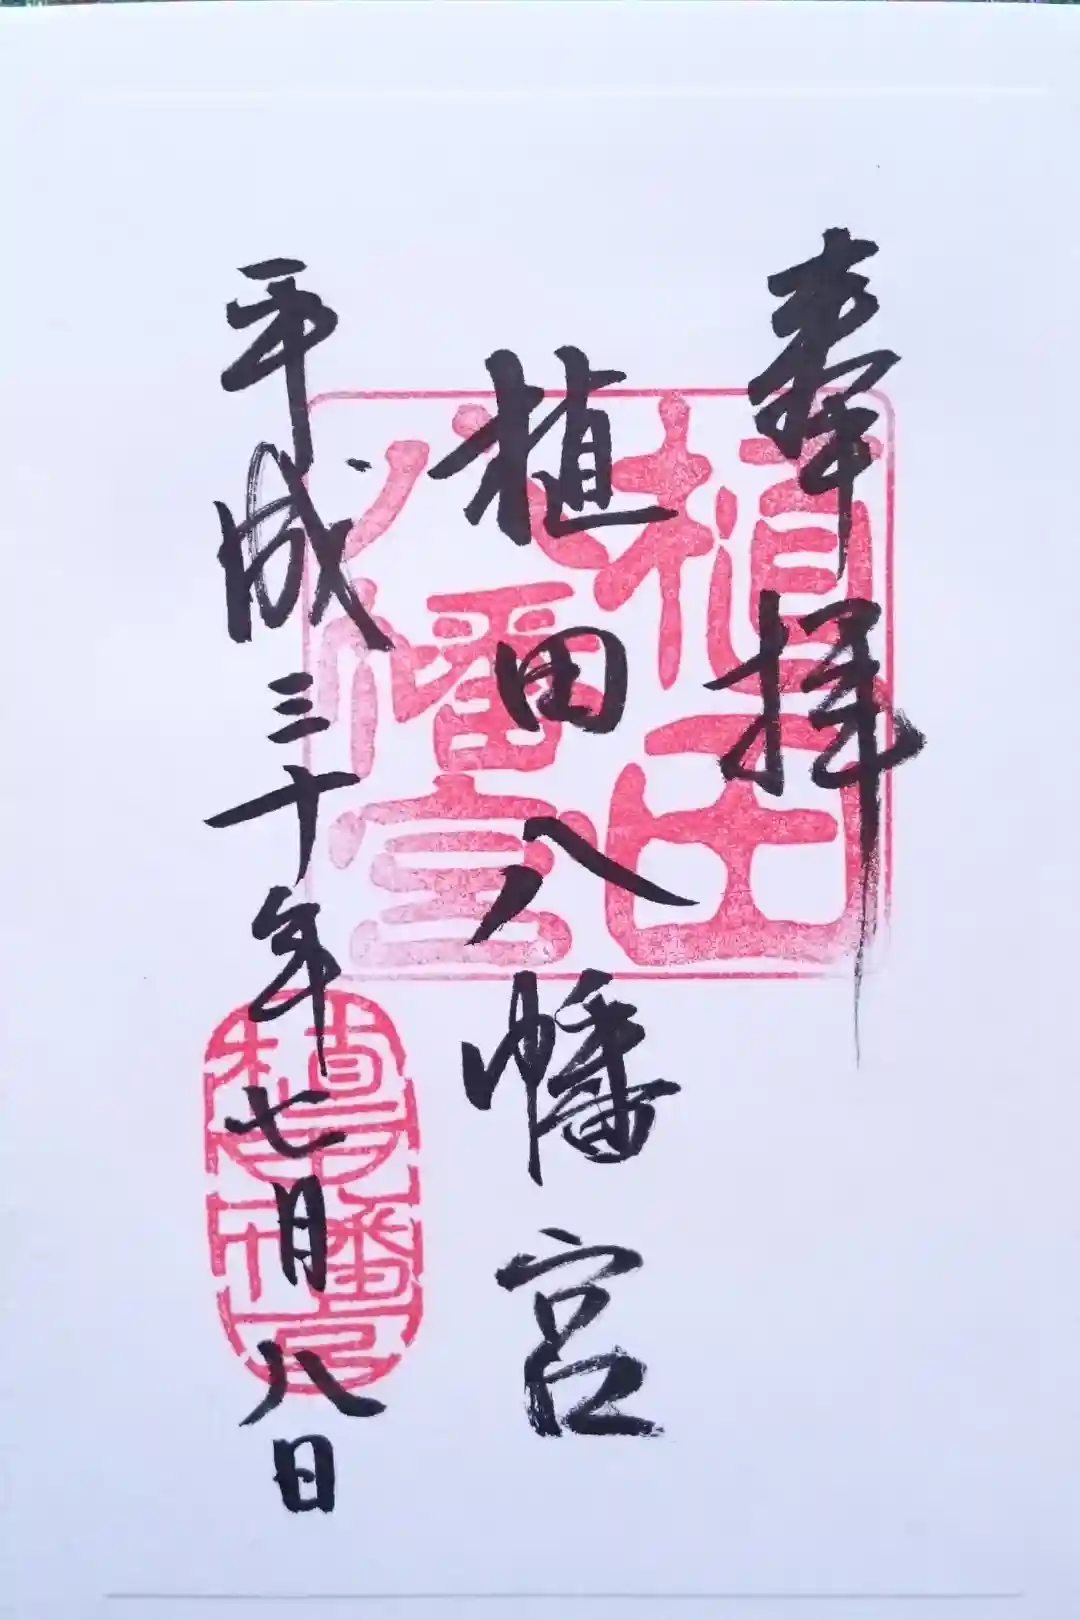 奉拝
植田八幡宮
平成三十年七月八日
植田八幡宮
植田八幡宮